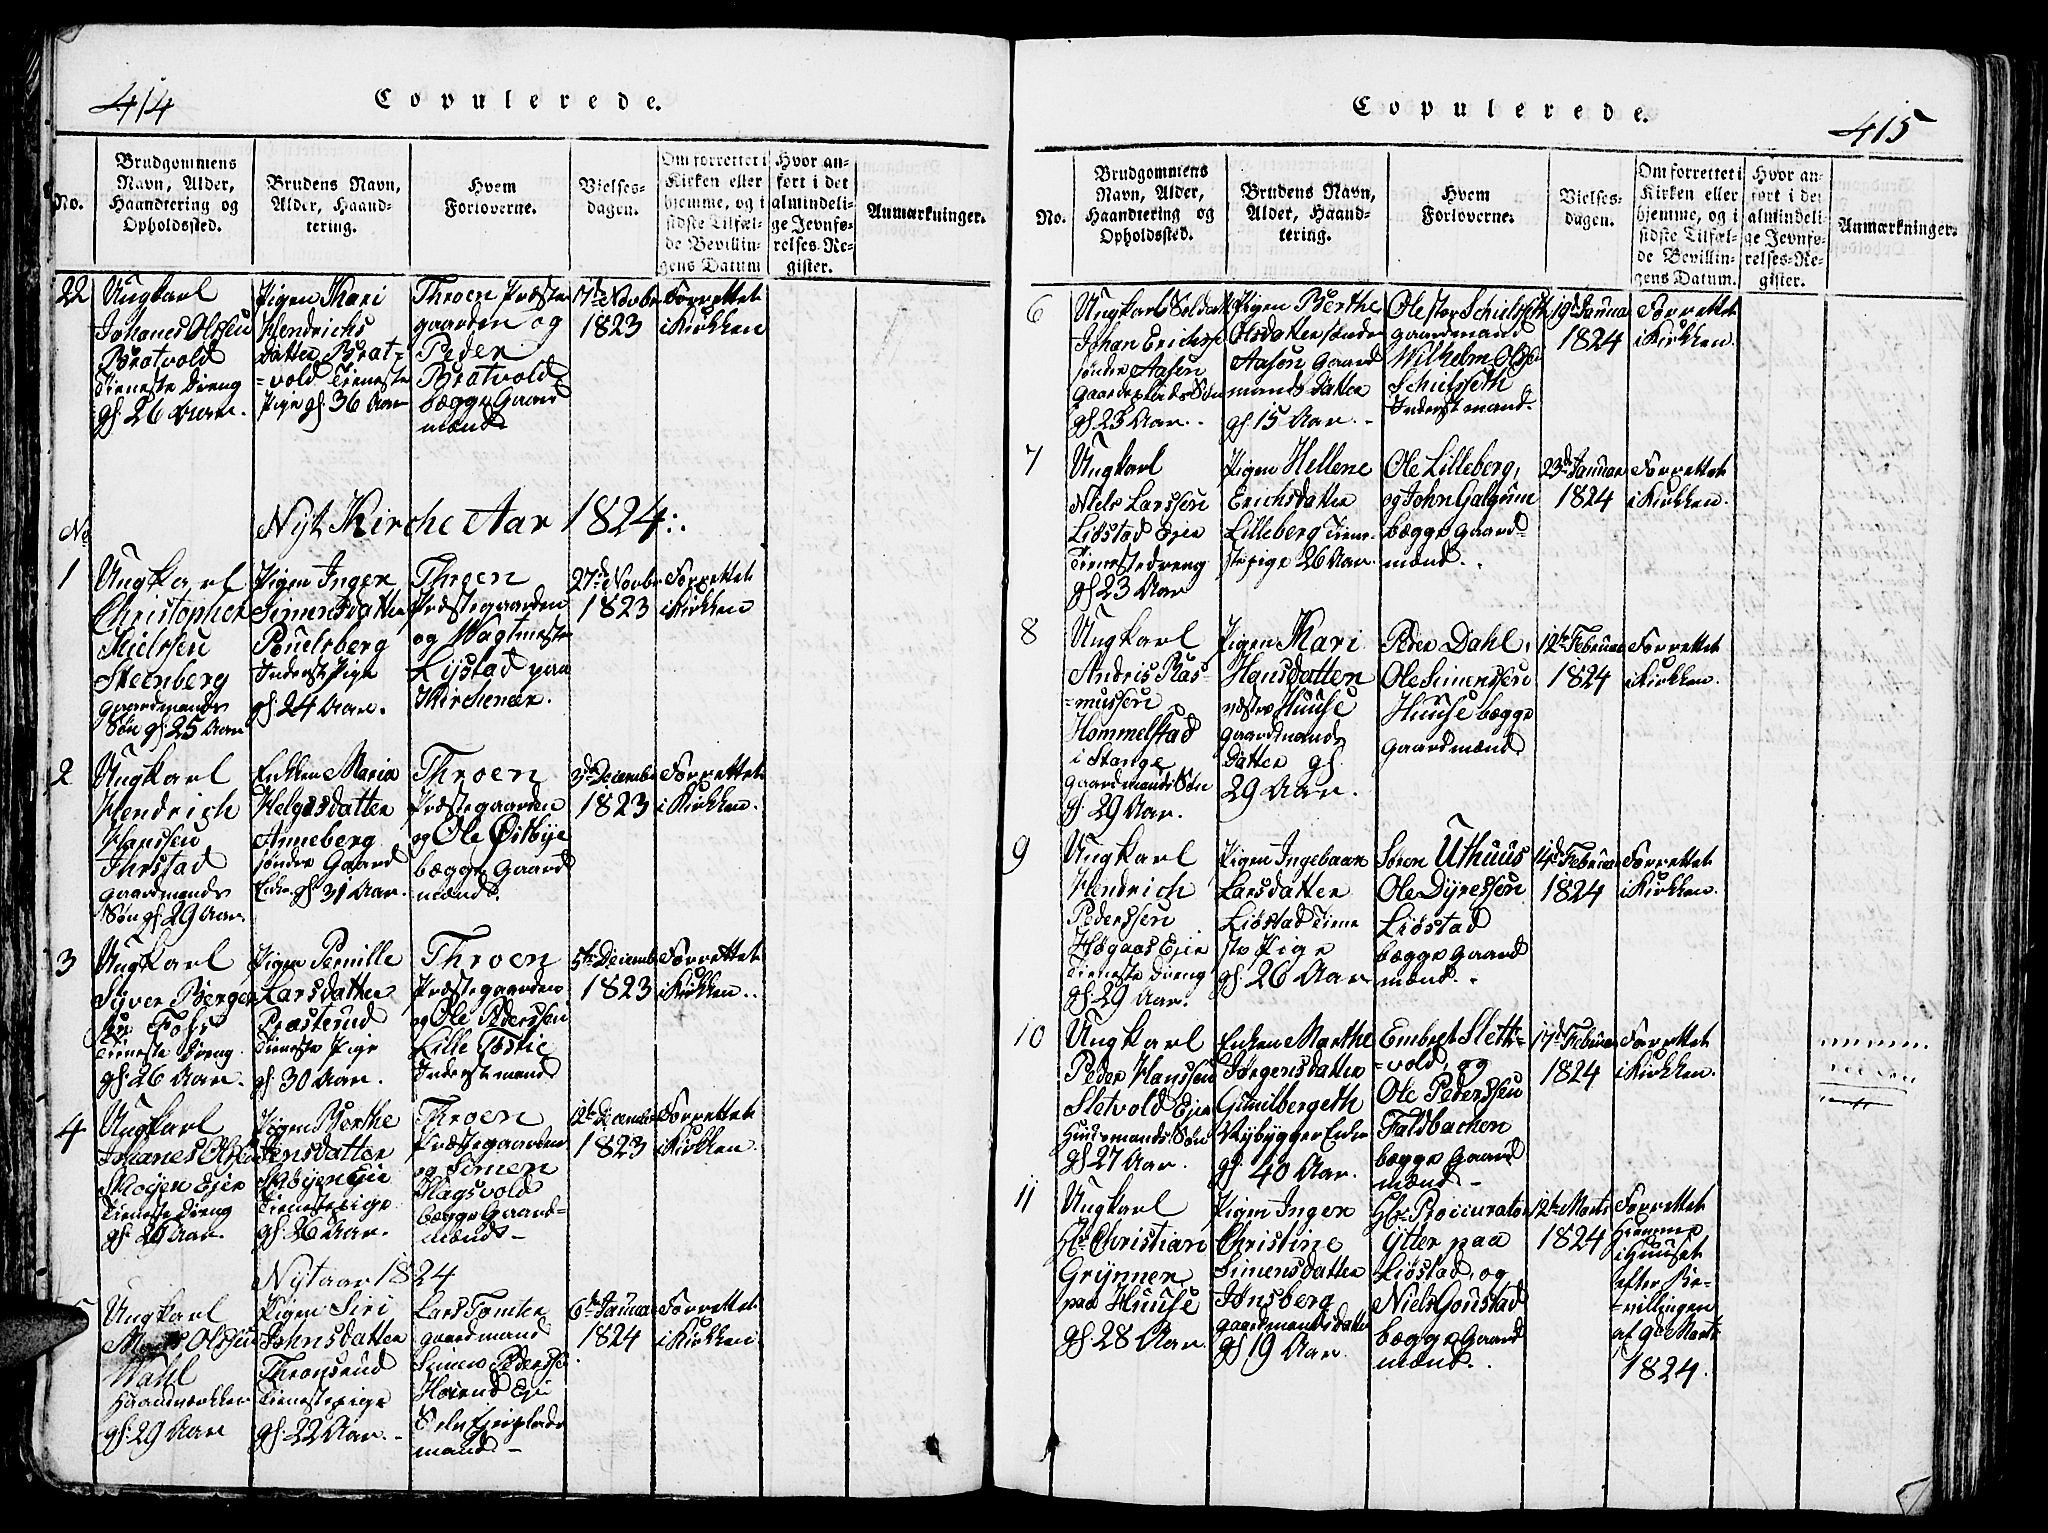 414
Copulerede.
No.
Brudgommens
Navn, Alder,
Haandtering og
Opholdssted.
Brudens Navn,
Alder, Haand-
tering.
Hvem
Forloverne.
Vielses-
dagen.
Om forrettet i
Kirken eller
hjemme, og i
sidste Tilfæl-
de Bevillin-
gens Datum
Hvor an-
ført i det
almindeli-
ge Jevnfø-
relses-Re-
gister.
Anmærkninger.
22
Ungkarl
Johanes Olssen
Bratvold
Tieneste Dreng
gl. 26 Aar.
Pigen Kari
Hendrichs
datter Brat-
=vold Tieneste
Pige gl. 36 Aar
Throen Præste
gaarden og
Peder
Bratvold
begge Gaard
mænd
17de Novbr
1823
Forrettet
i Kirkken
No
Nyt Kirche Aar 1824:.
1
Ungkarl
Christopher
Nielssen
Steenberg
gaardmands
Søn gl. 25 Aar
Pigen Inger
Simensdatter
Pouelsberg
Inderst Pige
gl. 24 Aar.
Throen
Præstegaarden
og Wagtmester
Lystad paa
Kirchenær.
27de Novbr
1823
Forrettet
i Kirkken
2
Ungkarl
Hendrich
Hanssen
Thrstad
gaardmands
Søn gl. 29 Aar.
Enkken Maria
Helgesdatter
Anneberg
søndre Gaard
Enke gl. 31 Aar.
Throen
Præstegaarden
og Ole Østbye
begge Gaard
mænd.
3de Decembr
1823
Forrettet
i Kirkken.
3
Ungkarl
Syver Berger
sen Fohs
Tieneste Dreng
gl. 26 Aar.
Pigen Pernille
Larsdatter
Præsterud
Tieneste Pige
gl. 30 Aar.
Throen
Præstegaarden
og Ole Pederssen
Lille Tostie
Inderstmænd
5te Decembr
1823
Forrettet
i Kirkken..
4
Ungkarl
Johanes Olssen
Moÿen Eje
Tieneste Dreng
gl. 29 Aar.
Pigen Berthe
Jensdatter
Moÿen Eie
Tienestepige
gl. 26 Aar.
Throen
Præstegaarden
og Simen
Flagsvold
begge Gaard-
mænd-
12te Decembr
1823
Forrettet
i Kirkken.
Nytaar 1824
5
Ungkarl
Olssen
Wahl
Haandværkker
gl. 29 Aar
Pigen Siri
Johnsdatter
Thronsrud
Tienestepige
gl. 22 Aar.-
Lars Tomter
gaardmand
Simen Pederssen
Hoiend Eje
Selv Eierplads
mand-
6te Januar
1824
Forrettet
i Kirkken.
Copulerede.
415
No.
Brudgommens
Navn, Alder,
Haandtering og
Opholdssted.
Brudens Navn,
Alder, Haand-
tering.
Hvem
Forloverne.
Vielses-
dagen.
Om forrettet i
Kirken eller
hjemme, og i
sidste Tilfæl-
de Bevillin-
gens Datum.
Hvor an-
ført i det
almindeli-
ge Jevnfø-
relses-Re-
gister.
Anmærkninger.
6
Ungkarl Soldat
Johan Erichssen
søndre Aasen
Gaardeplads Søn
gl. 23 Aar..
Pigen Berthe
Olsdatter søndre
Aasen Gaard
mands datter
gl. 15 Aar.-
Ole stor Schielseth
gaardmand
Wilhelm Olssen
Schielsseth
Inderstmand.
19de Januar
1824
Forrettet
i Kirkken.
7
Ungkarl
Niels Larssen
Liøstad Ejer
Tienestedreng
gl. 23 Aar
Pigen Hellene
Erichsdatter
Lilleberg Tiene-
stepige 26 Aar.
Ole Lilleberg,
og John Galgum
begge gaard=
mænd..
23de Januar
1824
Forrettet
i Kirkken.
8
Ungkarl
Andris Ras-
=mussen
Hommelstad
i Stange
Gaardmands Søn
gl. 29 Aar.
Pigen Kari
Hansdatter
næstes Huuse
Gaardmands
datter gl.
29 Aar.
Peder Dahl,
Ole Simenssen
Huuse begge
Gaardmænd
12te Februar
1824
Forrettet
i Kirkken.
9
Ungkarl
Hendrich
Pederssen
Høgaas Eje
Tieneste Dreng
gl. 29 Aar.
Pigen Ingebaar
Larsdatter
Liøstad Tiene
ste Pige
gl. 26 Aar
Søren Uthuus
Ole Dyressen
Liøstad
begge Gaard
mænd..
14de Februar
1824
Forrettet
i Kirkken.
10
Ungkarl
Peder Hanssen
Sletvold Ejer
Huusmands Søn
gl. 27 Aar.
Enken Marthe
Jørgensdatter
Gunilbergeth
Nybygger Enke
gl. 40 Aar.
Embret Sleth=
=vold, og
Ole Pederssen
Faldbachen
begge Gaard
mænd-
17de Februar
1824
Forrettet
i Kirkken.
11
Ungkarl
Hr Christian
Grÿnner
paa Huuse
gl. 28 Aar
Pigen Inger
Christine
Simensdatter
Jønsberg
gaardmandsdatter
gl 19 Aar.
Hr. Proccurator
Ytter paa
Liøstad, og
Niels Goustad
begge Gaard
mænd..
12te Marts
1824
Forrettet
hiemme
i Huuset
efter Be=
=villingen
af 9de Marts
1824.